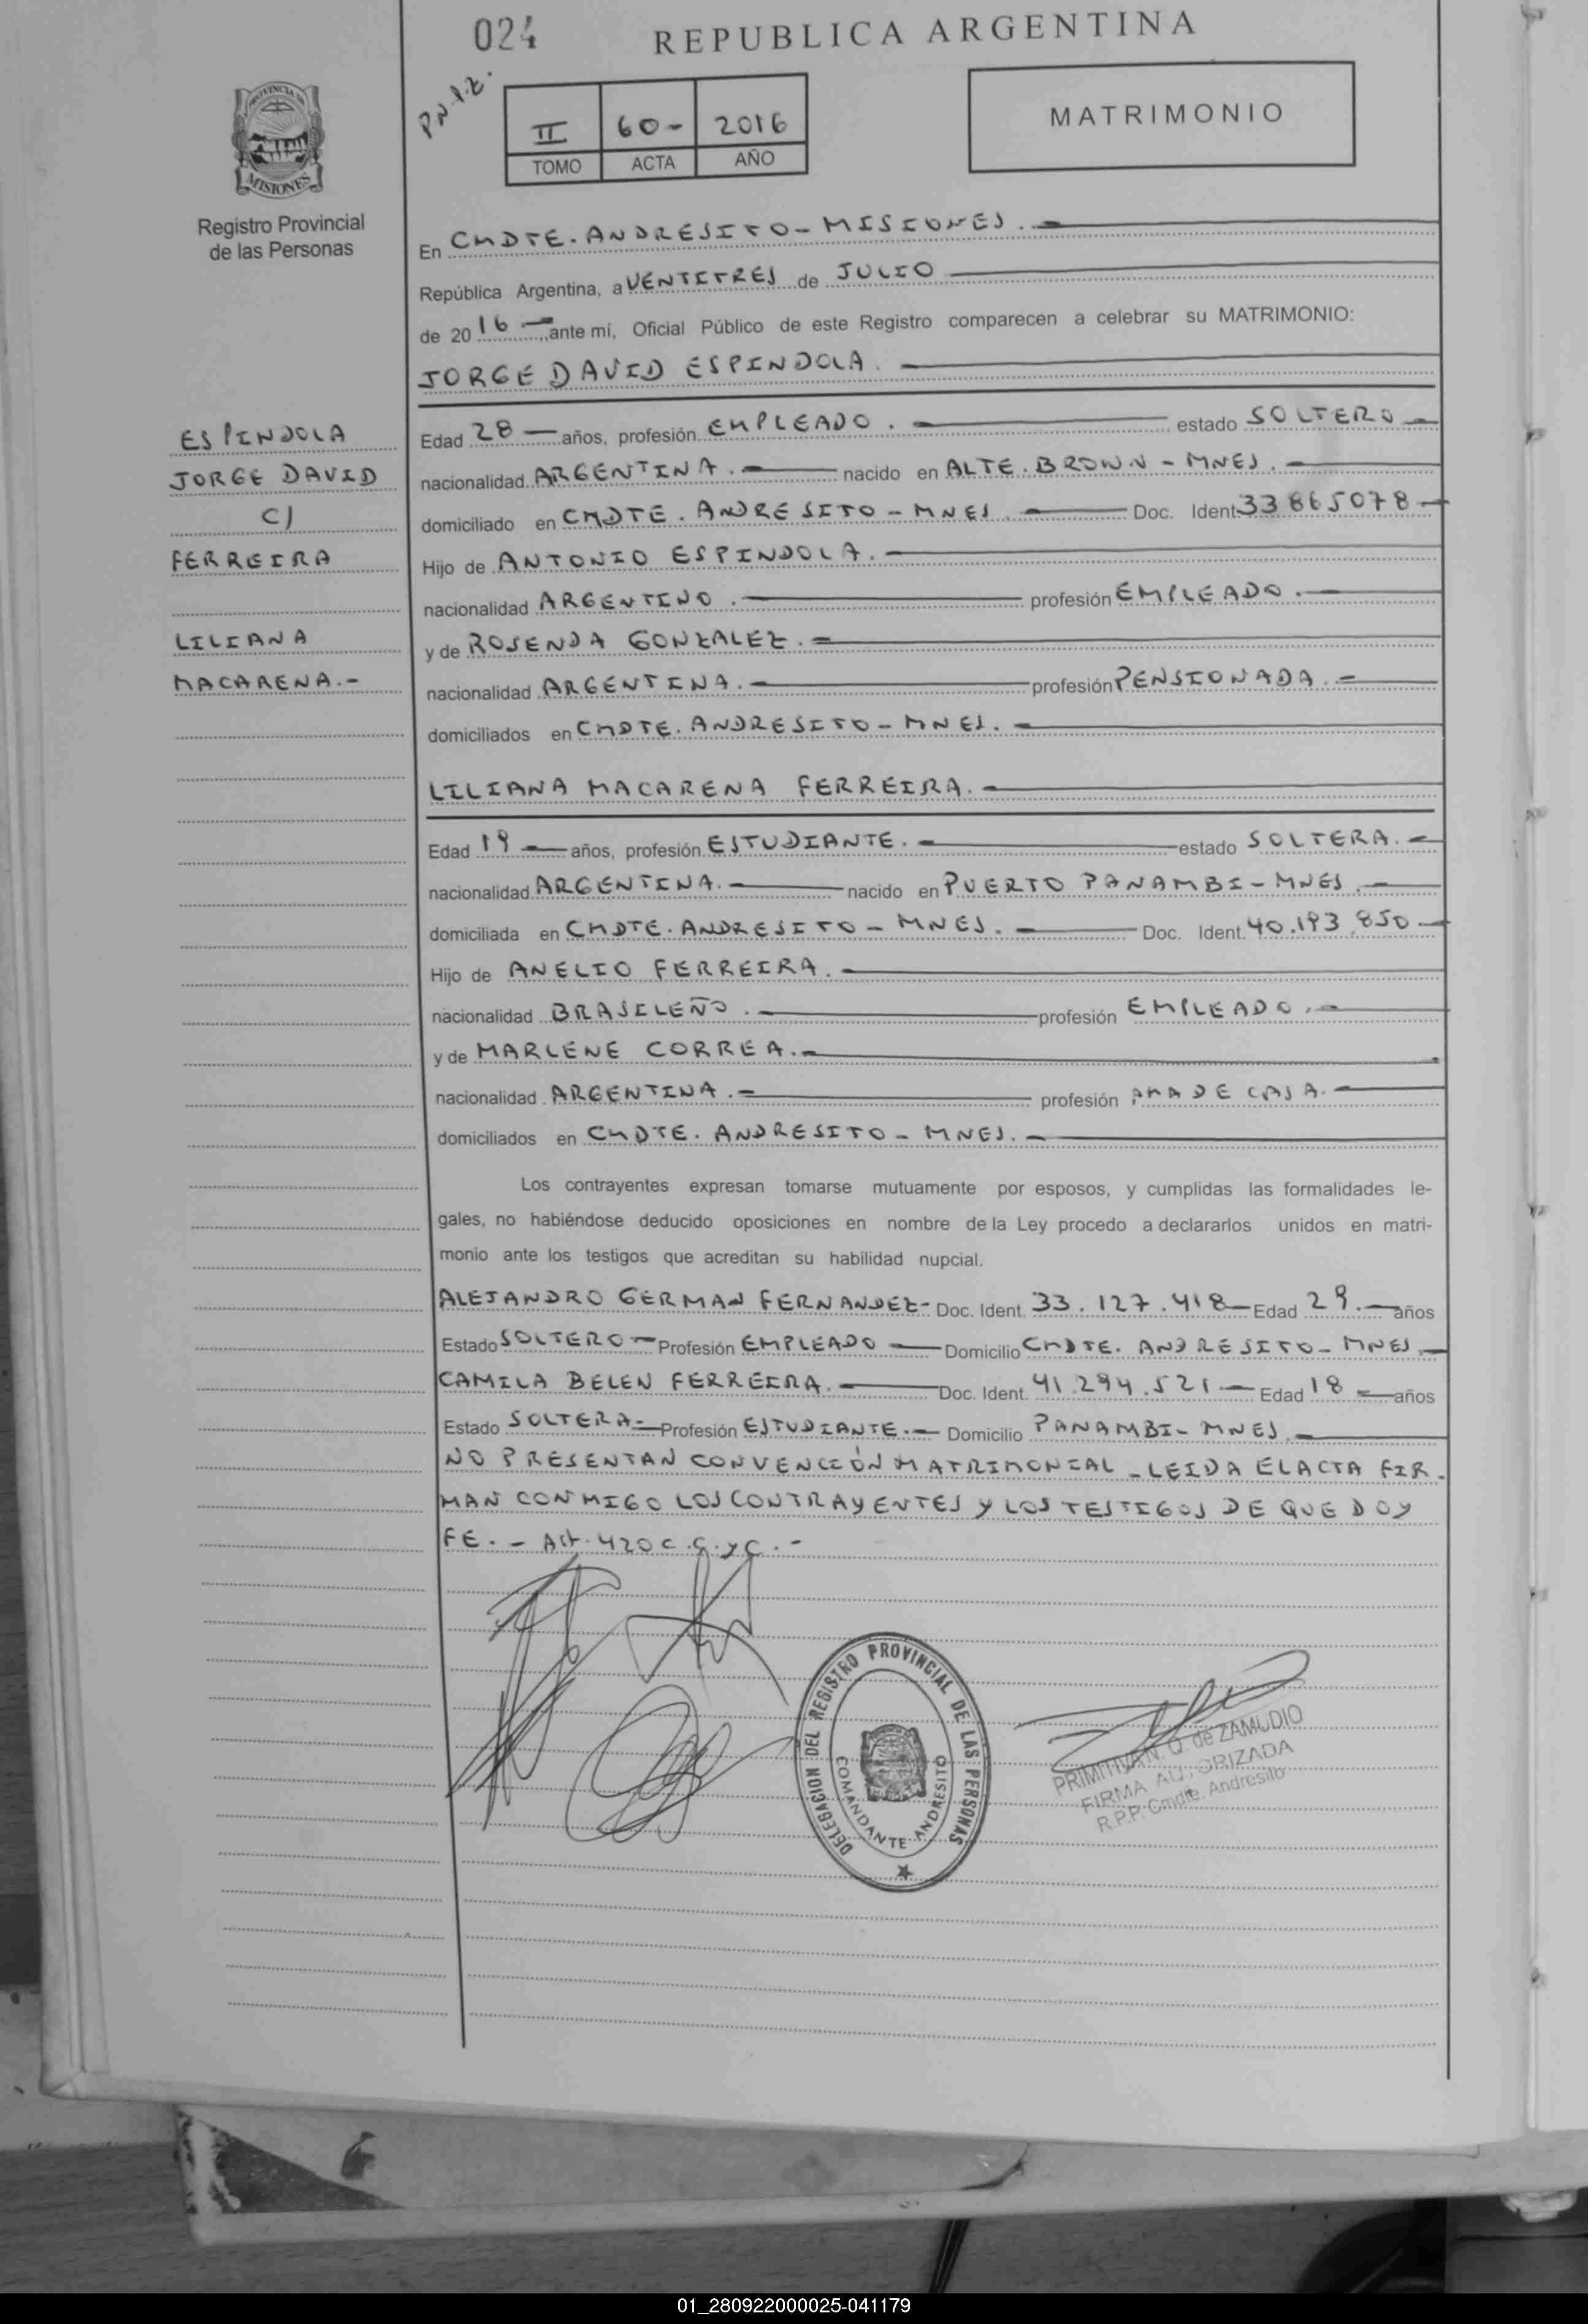 024
REPUBLICA ARGENTINA
II 60- 2016
TOMO ACTA AÑO
MATRIMONIO
PROVINCIA DE
MISIONES
Registro Provincial
de las Personas
En CMDTE. ANDRESITO - MISIONES.
República Argentina, a VENTITRES de JULIO
de 2016 ante mí, Oficial Público de este Registro comparecen a celebrar su MATRIMONIO:
JORGE DAVID ESPINDOLA.
ESPINDOLA
JORGE DAVID
C/
FERREIRA
LILIANA
MACARENA.-
Edad 28 años, profesión EMPLEADO. estado SOLTERO
nacionalidad ARGENTINA. nacido en ALTE. BROWN - MNES.
domiciliado en CMDTE. ANDRESITO - MNES. Doc. Ident 33865078
Hijo de ANTONIO ESPINDOLA.
nacionalidad ARGENTINO. profesión EMPLEADO.
y de ROSENDA GONZALEZ.
nacionalidad ARGENTINA. profesión PENSIONADA.
domiciliados en CMDTE. ANDRESITO - MNES.
LILIANA MACARENA FERREIRA.
Edad 19 años, profesión ESTUDIANTE. estado SOLTERA.
nacionalidad ARGENTINA. nacido en PUERTO PANAMBI - MNES.
domiciliada en CMDTE. ANDRESITO - MNES. Doc. Ident. 40.193.850
Hijo de ANELIO FERREIRA.
nacionalidad BRASILEÑO. profesión EMPLEADO.
y de MARLENE CORREA.
nacionalidad ARGENTINA. profesión AMA DE CASA.
domiciliados en CMDTE. ANDRESITO - MNES.
Los contrayentes expresan tomarse mutuamente por esposos, y cumplidas las formalidades le-
gales, no habiéndose deducido oposiciones en nombre de la Ley procedo a declararlos unidos en matri-
monio ante los testigos que acreditan su habilidad nupcial.
ALEJANDRO GERMAN FERNANDEZ- Doc. Ident. 33.127.418 Edad 29. años
Estado SOLTERO Profesión EMPLEADO Domicilio CMDTE. ANDRESITO - MNES.
CAMILA BELEN FERREIRA. Doc. Ident. 41.294.521 Edad 18 años
Estado SOLTERA Profesión ESTUDIANTE. Domicilio PANAMBI - MNES.
NO PRESENTAN CONVENCIÓN MATRIMONIAL - LEIDA EL ACTA FIR-
MAN CONMIGO LOS CONTRAYENTES Y LOS TESTIGOS DE QUE DOY
FE. - Art. 420 C.C. y C. -
DELEGACION DEL REGISTRO PROVINCIAL DE LAS PERSONAS
COMANDANTE ANDRESITO
PRIMITIVA N. Q. de ZAMUDIO
FIRMA AUTORIZADA
R.P.P. Cmdte. Andresito
01_280922000025-041179